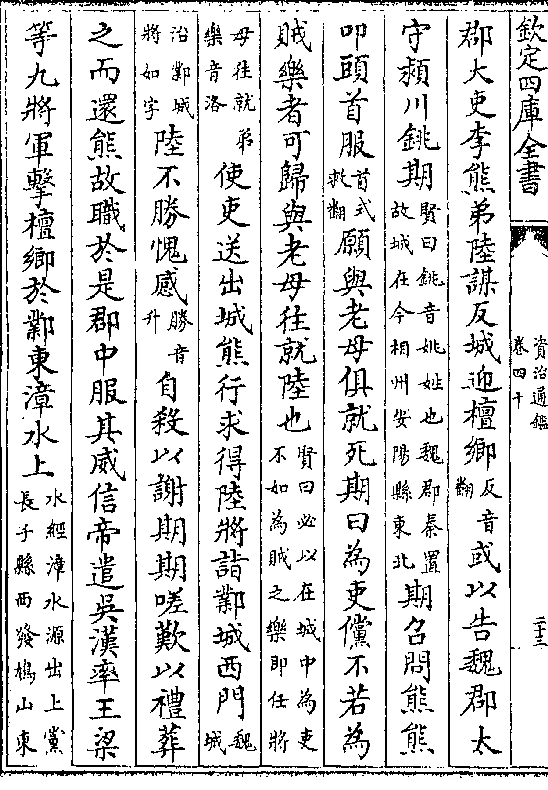 欽定四庫全書
資治通鑑
卷四十
二十三
郡大吏李熊弟陸謀反城迎檀鄉反音翻或以告魏郡太
守潁川銚期賢曰銚音姚姓也魏郡秦置故城在今相州安陽縣東北期召問熊熊
叩頭首服首式救翻願與老母俱就死期曰為吏儻不若為
賊樂者可歸與老母往就陸也賢曰必以在城中為吏不如為賊之樂即任將
母往就弟樂音洛使吏送出城熊行求得陸將詣鄴城西門魏城
治鄴城將如字陸不勝愧感勝音升自殺以謝期期嗟歎以禮葬
之而還熊故職於是郡中服其威信帝遣吳漢率王梁
等九將軍擊檀鄉於鄴東漳水上水經漳水源出上黨長子縣西發鳩山東